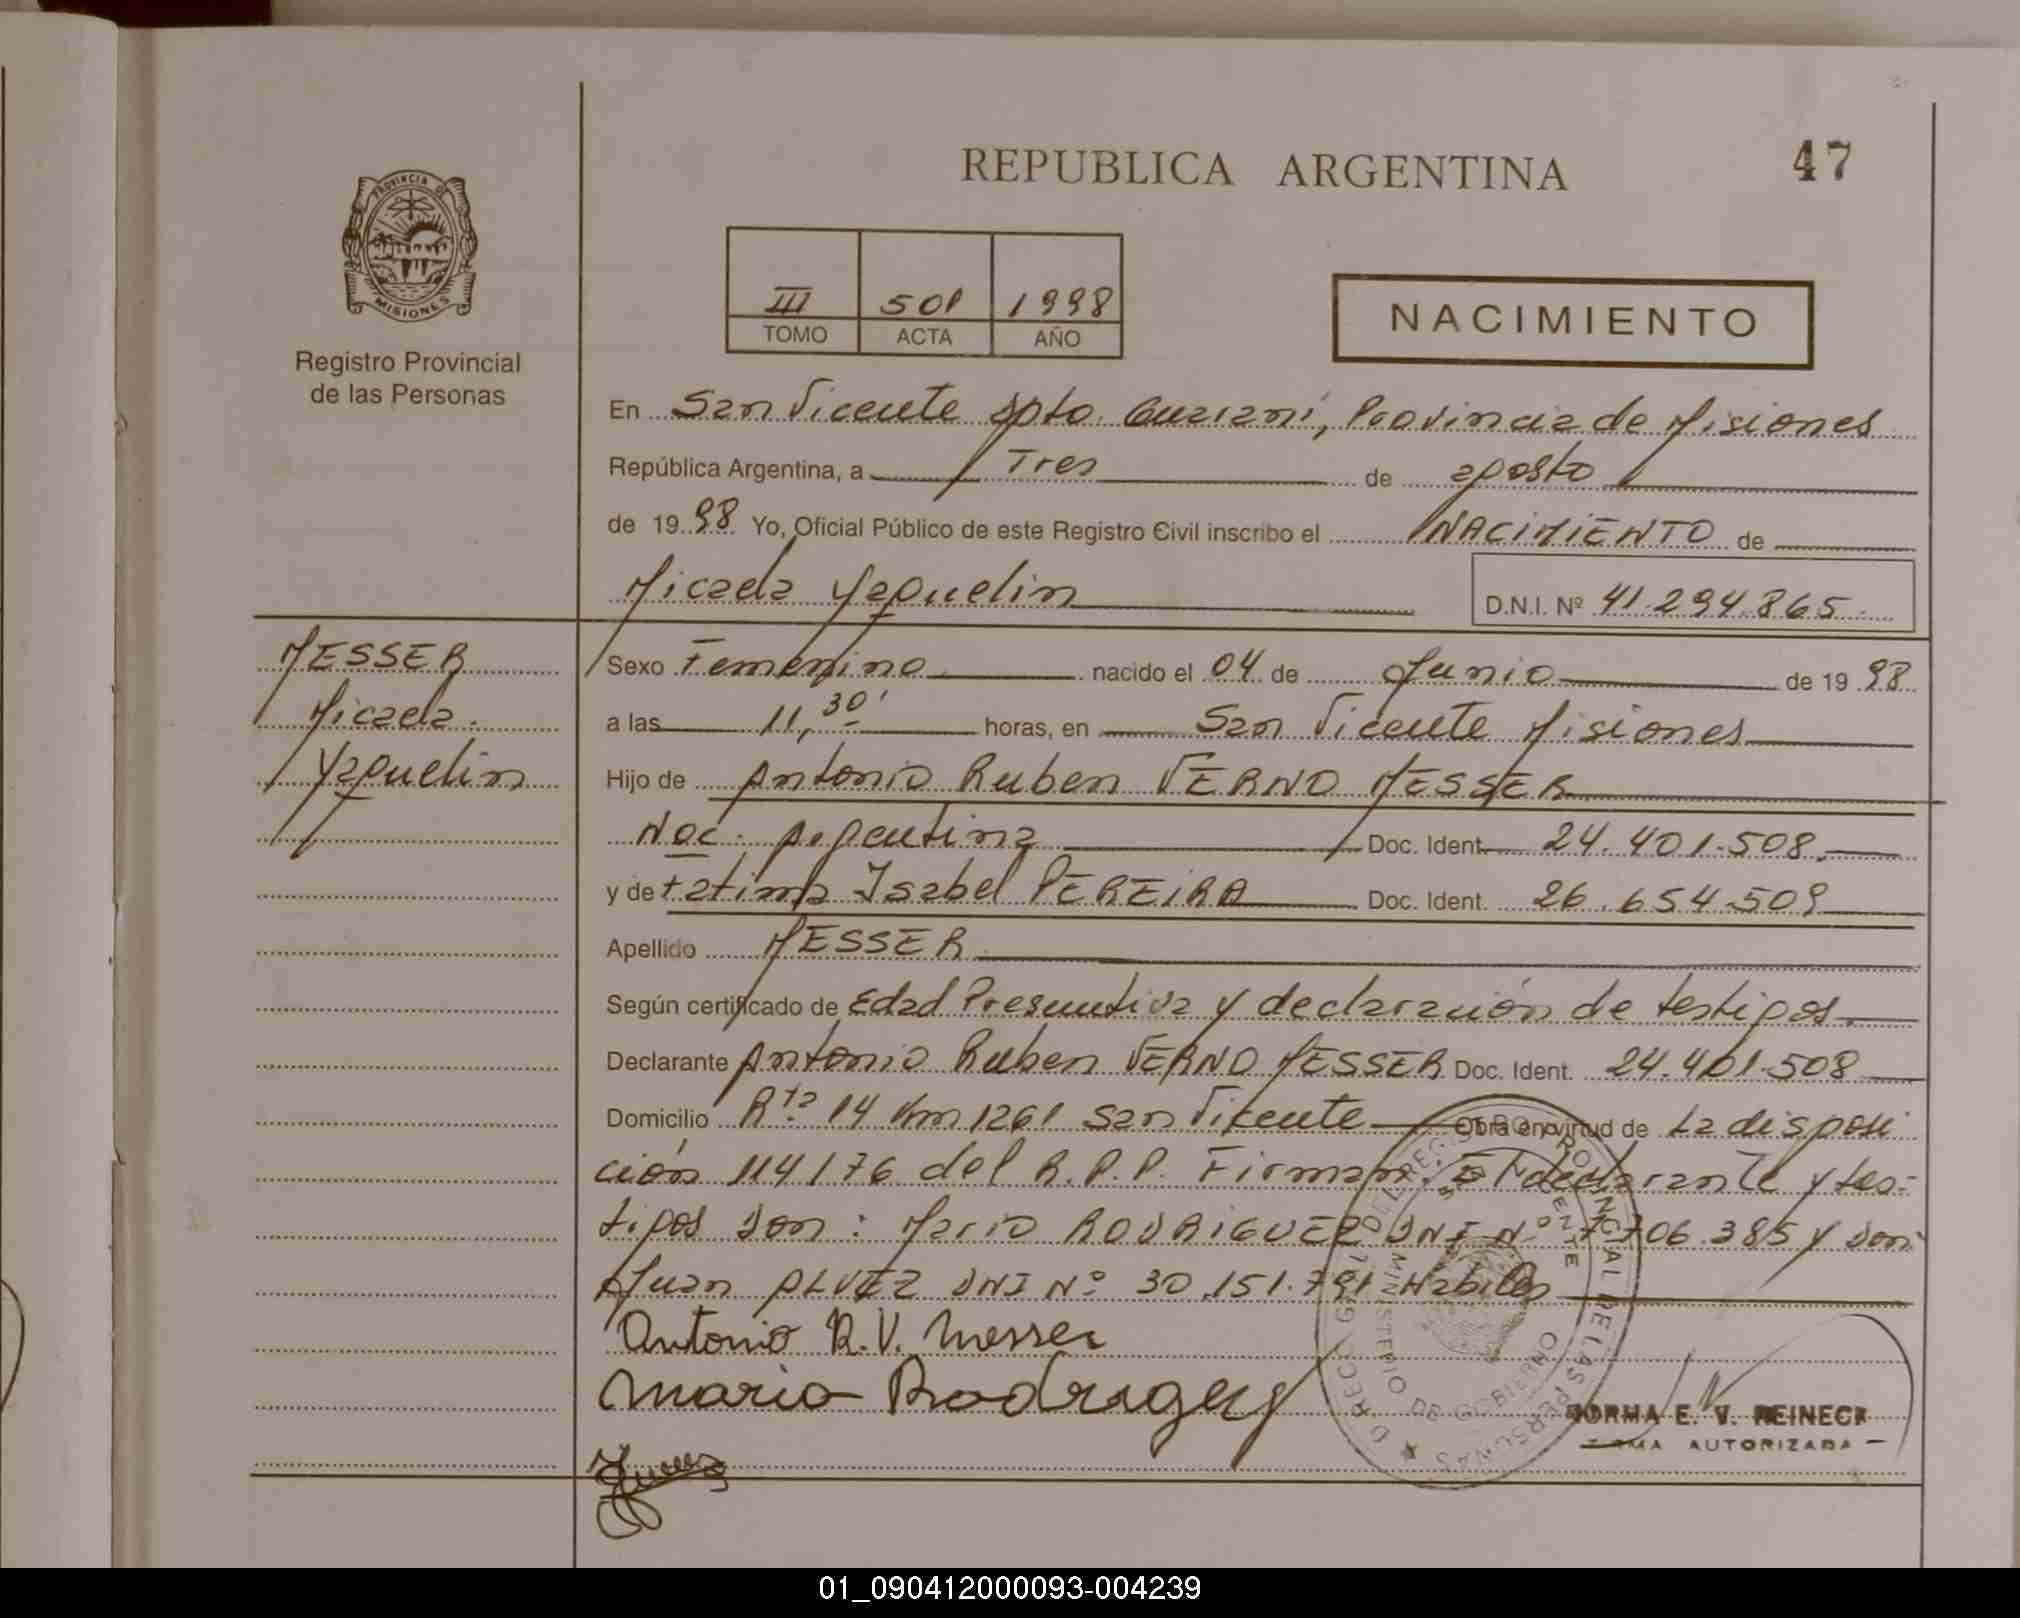 REPUBLICA ARGENTINA
47
PROVINCIA D
MISIONES
Registro Provincial
de las Personas
III 501 1998
TOMO ACTA AÑO
NACIMIENTO
En San Vicente Dpto. Guaraní, Provincia de Misiones
República Argentina, a Tres de agosto
de 1998 Yo, Oficial Público de este Registro Civil inscribo el NACIMIENTO de
Micaela Yaquelin D.N.I. Nº 41.294.865
MESSER
Micaela
Yaquelin
Sexo Femenino nacido el 04 de Junio de 1998
a las 11,30' horas, en San Vicente Misiones
Hijo de Antonio Ruben VERNO MESSER
Nac. Argentina Doc. Ident. 24.401.508.
y de Fatima Isabel PEREIRA Doc. Ident. 26.654.509
Apellido MESSER
Según certificado de Edad Presuntiva y declaración de testigos.
Declarante Antonio Ruben VERNO MESSER Doc. Ident. 24.401.508
Domicilio Rta 14 Km 1261 San Vicente Obra en virtud de La disposi
ción 114/76 del R.P.P. Firman: El declarante y tes-
tigos Don: Mario RODRIGUEZ DNI Nº 7.706.385 y Don
Juan ALVEZ DNI Nº 30.151.791 Habiles
Antonio R.V. Messer
Mario Rodriguez
NORMA E. V. REINECK
FIRMA AUTORIZADA
DIRECC. GRAL. DEL REGISTRO PROVINCIAL DE LAS PERSONAS
MINISTERIO DE GOBIERNO
SAN VICENTE
01_090412000093-004239